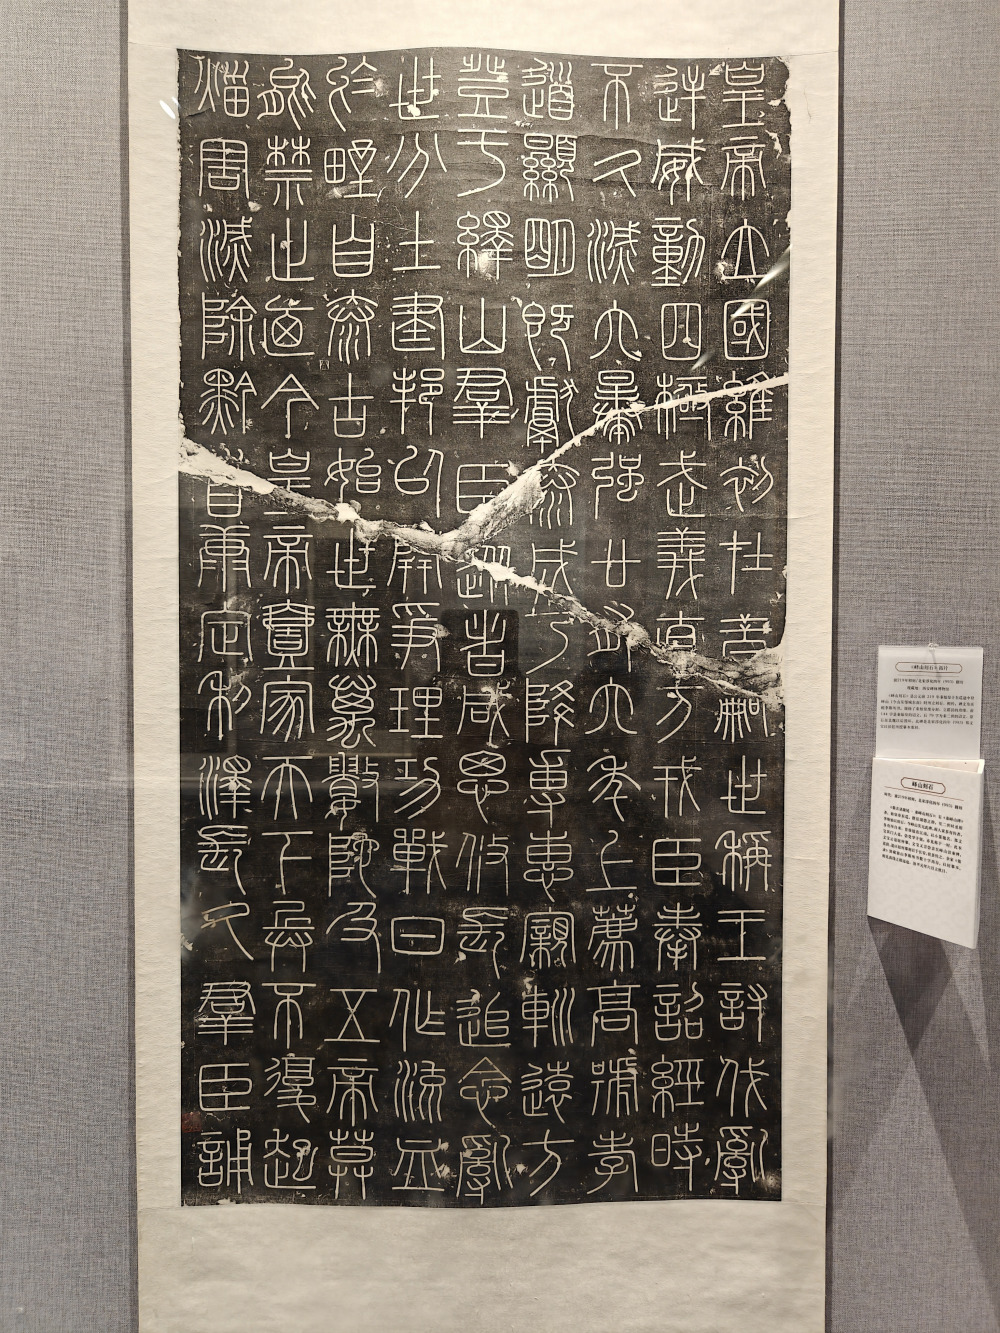 皇帝立國維初在昔嗣世稱王討伐亂
逆威動四極武義直方戎臣奉詔經時
不久滅六暴強廿有六年上薦高號孝
道顯明既獻泰成乃降專惠親巡遠方
登于繹山羣臣從者咸思攸長追念亂
世分土建邦以開爭理功戰日作流血
於野自泰古始世無萬數陀及五帝莫
能禁止廼今皇帝壹家天下兵不復起
熠害滅除黔首康定利澤長久羣臣誦
峄山刻石